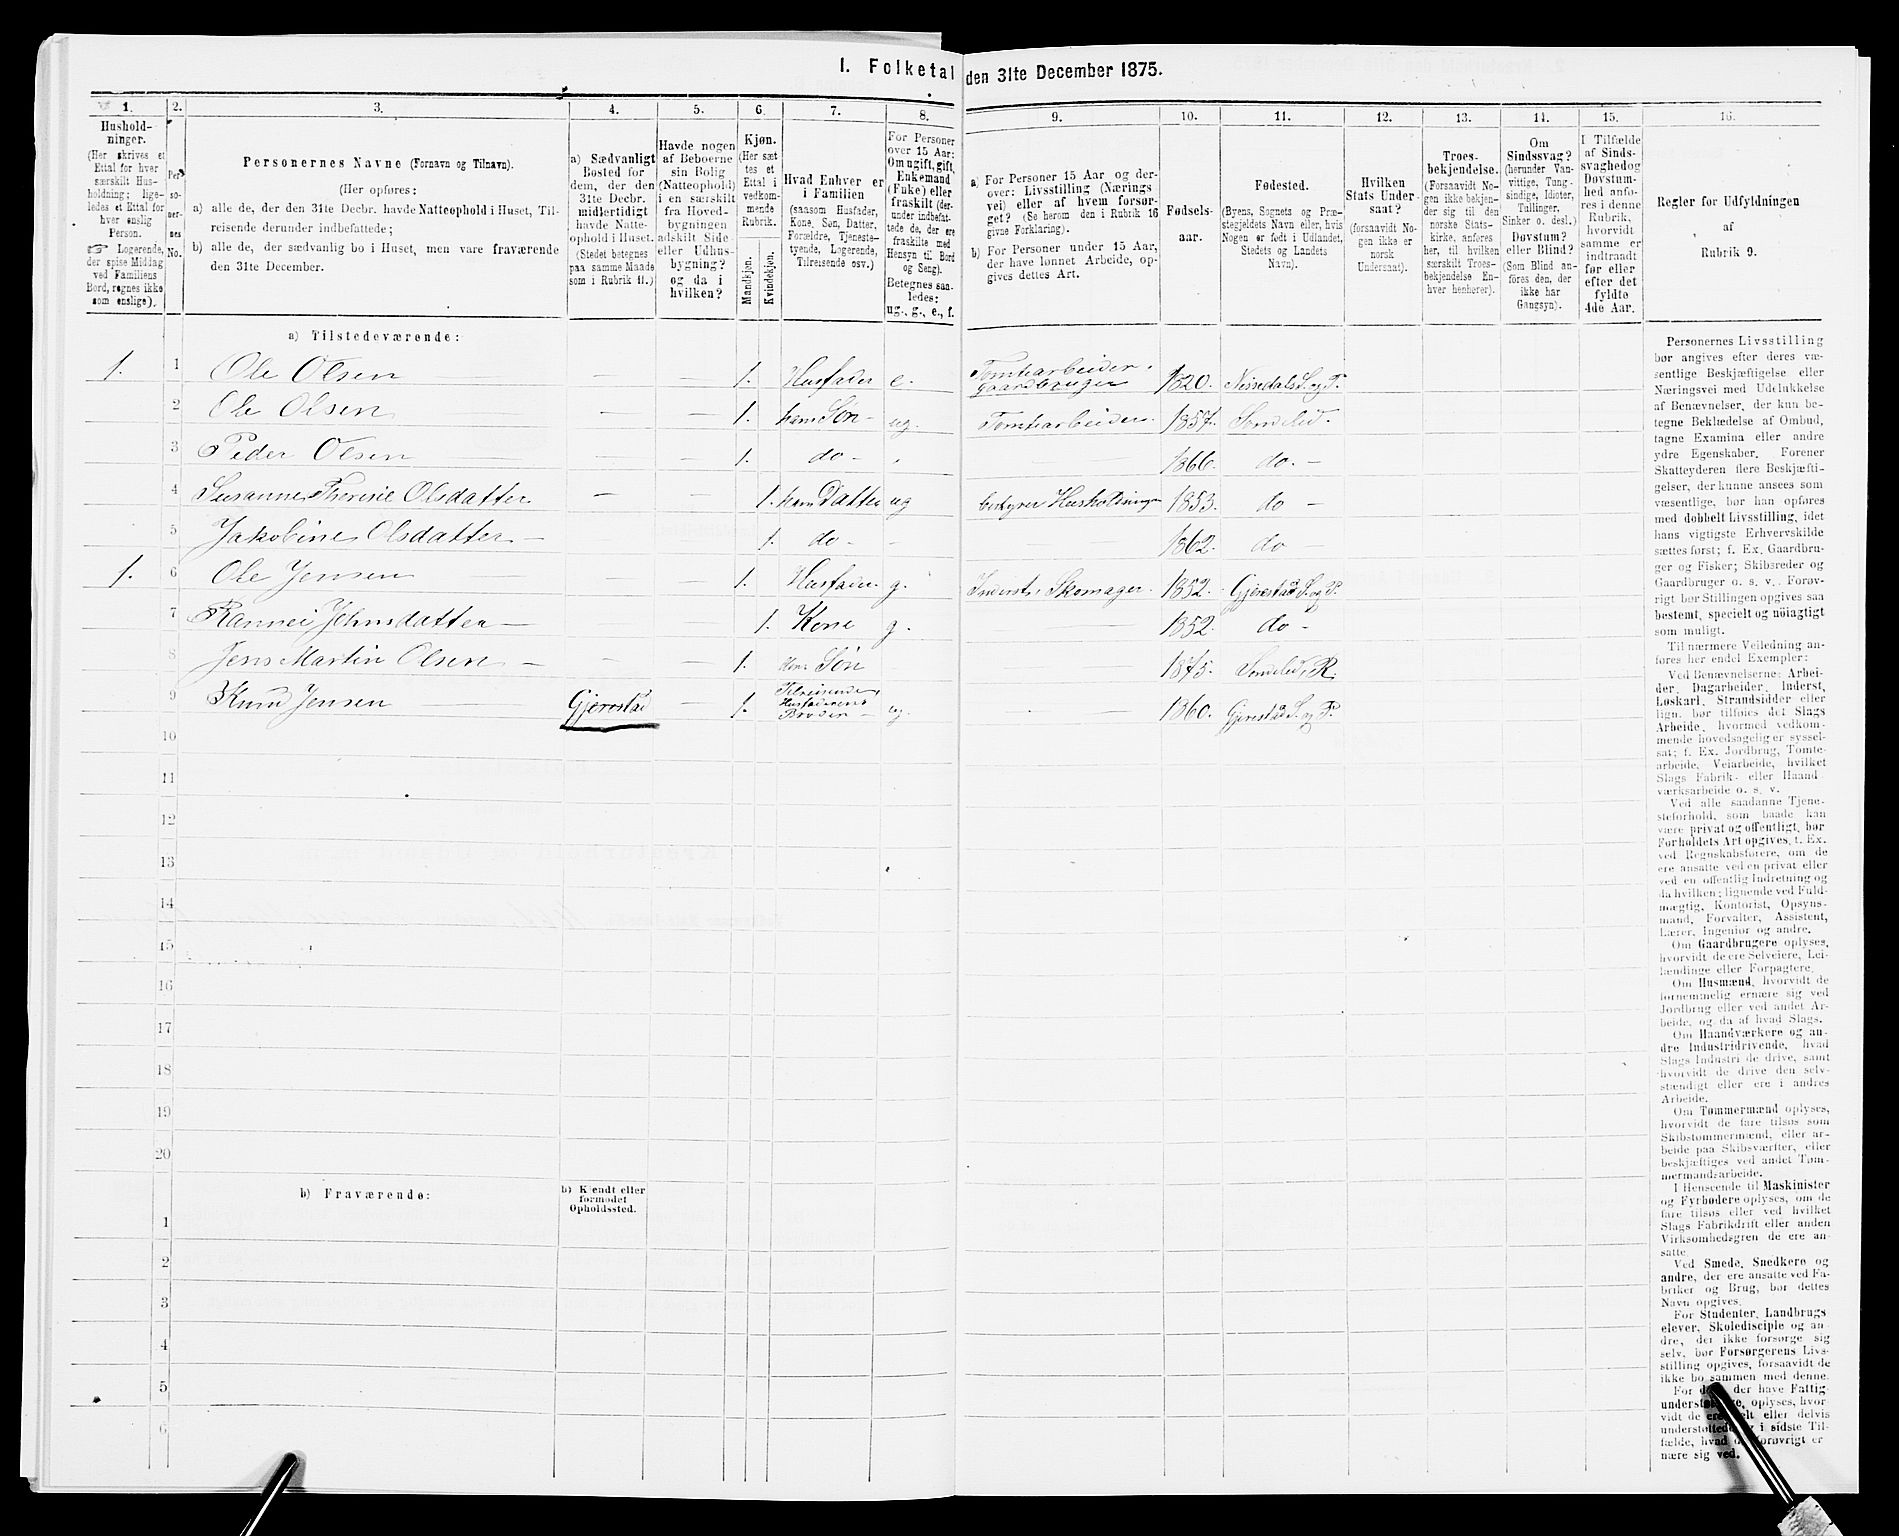 I. Folketal den 31te December 1875.
1. 2. 3. 4. 5. 6. 7. 8. 9. 10. 11. 12. 13. 14. 15. 16.
Hushold-
ninger.
(Her skrives et
Ettal for hver
særskilt Hus-
holdning; lige-
ledes et Ettal for
hver enslig
Person.
☞ Logerende,
der spise Middag
ved Familiens
Bord, regnes ikke
som enslige).
Per-
so-
ner-
nes
No.
Personernes Navne (Fornavn og Tilnavn).
(Her opføres:
a) alle de, der den 31te Decbr. havde Natteophold i Huset, Til-
reisende derunder indbefattede;
b) alle de, der sædvanlig bo i Huset, men vare fraværende
den 31te December.
a) Sædvanligt
Bosted for
dem, der den
31te Decbr.
midlertidigt
havde Natte-
ophold i Huset.
(Stedet betegnes
paa samme Maade
som i Rubrik 11.)
Havde nogen
af Beboerne
sin Bolig
(Natteophold)
i en særskilt
fra Hoved-
bygningen
adskilt Side-
eller Udhus-
bygning?
og da i
hvilken?
Kjøn.
(Her sæt-
tes et
Ettal i
vedkom-
mende
Rubrik.
Mandkjøn.
Kvindekjøn.
Hvad Enhver er
i Familien
(saasom Husfader,
Kone, Søn, Datter,
Forældre, Tjeneste-
tyende, Logerende,
Tilreisende osv.)
For Personer
over 15 Aar:
Om ugift, gift,
Enkemand
(Enke) eller
fraskilt (der-
under indbefat-
tede de, der ere
fraskilte med
Hensyn til Bord
og Seng).
Betegnes saa-
ledes:
ug., g., e., f.
a) For Personer 15 Aar og der-
over: Livsstilling (Nærings
vei) eller af hvem forsør-
get? (Se herom den i Rubrik 16
givne Forklaring).
b) For Personer under 15 Aar,
der have lønnet Arbeide, op-
gives dettes Art.
Fødsels-
aar.
Fødested.
(Byens, Sognets og Præ-
stegjeldets Navn eller, hvis
Nogen er født i Udlandet,
Stedets og Landets
Navn).
Hvilken
Stats Under-
saat?
(forsaavidt No-
gen ikke er
norsk
Undersaat).
Troes-
bekjendelse.
(Forsaavidt No-
gen ikke bekjen-
der sig til den
norske Stats-
kirke, anføres
her, til hvilken
særskilt Troes-
bekjendelse En-
hver henhører).
Om
Sindssvag?
(herunder Van-
vittige, Tung-
sindige, Idioter,
Tullinger,
Sinker o. desl.)
Døvstum?
eller Blind?
(Som Blind an-
føres den, der
ikke har
Gangsyn).
I Tilfælde
af Sinds-
svaghed og
Døvstum-
hed anfø-
res i denne
Rubrik,
hvorvidt
samme er
indtraadt
før eller
efter det
fyldte
4de Aar.
Regler for Udfyldningen
af
Rubrik 9.
a) Tilstedeværende:
1. 1 Ole Olsen — — — 1. Husfader e. Tomtarbeider, gaardbruger 1820. Nissedal S. og P.
2 Ole Olsen — — 1. hans Søn – ug. Tomtarbeider. 1857. Sondeled.
3 Peder Olsen — — — 1. do – — 1866. do. –
4 Susanne Therisie Olsdatter — — 1. hans Datter ug bestyrer Husholdningen 1853. do –
5 Jakobine Olsdatter — — — 1. do – – — 1862. do –
1. 6 Ole Jensen — — — 1. Husfader. g. Inderst, Skomager. 1852. Gjerestad S. og P.
7 Rannei Johnsdatter — — — 1. Kone g. — 1852. do –
8 Jens Martin Olsen — — — 1. Hans Søn — 1875. Sondeled, R.
9 Knud Jensen — Gjerestad — 1. Tilreisende, Husfaderens Broder – ug. — 1860. Gjerestad S. og P.
10
11
12
13
14
15
16
17
18
19
20
b) Fraværende:
b) Kjendt eller
formodet
Opholdssted.
1
2
3
4
5
6
Personernes Livsstilling
bør angives efter deres væ-
sentlige Beskjæftigelse eller
Næringsvei med Udelukkelse
af Benævnelser, der kun be-
tegne Beklædelse af Ombud,
tagne Examina eller andre
ydre Egenskaber. Forener
Skatteyderen flere Beskjæfti-
gelser, der kunne ansees som
væsentlige, bør han opføres
med dobbelt Livsstilling, idet
hans vigtigste Erhvervskilde
sættes først; f. Ex. Gaardbru-
ger og Fisker; Skibsreder og
Gaardbruger o. s. v. Forøv-
rigt bør Stillingen opgives saa
bestemt, specielt og nöiagtigt
som muligt.
Til nærmere Veiledning an-
føres her endel Exempler:
Ved Benævnelserne: Arbei-
der, Dagarbeider, Inderst,
Løskarl, Strandsidder eller
lign. bør tilføies det Slags
Arbeide, hvormed vedkom-
mende hovedsagelig er syssel-
sat; f. Ex. Jordbrug, Tomte-
arbeide, Veiarbeide, hvilket
Slags Fabrik- eller Haand-
værksarbeide o. s. v.
Ved alle saadanne Tjene-
steforhold, som baade kan
være privat og offentligt, bør
Forholdets Art opgives, f. Ex.
ved Regnskabsførere, om de
ere ansatte ved en privat eller
ved en offentlig Indretning og
da hvilken; lignende ved Fuld-
mægtig, Kontorist, Opsyns-
mand, Forvalter, Assistent,
Lærer, Ingeniør og andre.
Om Gaardbrugere oplyses,
hvorvidt de ere Selveiere, Lei-
lændinge eller Forpagtere.
Om Husmænd, hvorvidt de
fornemmelig ernære sig ved
Jordbrug eller ved andet Ar-
beide, og da af hvad Slags.
Om Haandværkere og an-
dre Industridrivende, hvad
Slags Industri de drive, samt
hvorvidt de drive den selv-
stændigt eller ere i andres
Arbeide.
Om Tømmermænd oplyses,
hvorvidt de fare tilsøs som
Skibstømmermænd, eller ar-
beide paa Skibsværfter, eller
beskjæftiges ved andet Tøm-
mermandsarbeide.
I Henseende til Maskinister
og Fyrbødere oplyses, om de
fare tilsøs eller ved hvilket
Slags Fabrikdrift eller anden
Virksomhedsgren de ere an-
satte.
Ved Smede, Snedkere og
andre, der ere ansatte ved Fa-
briker og Brug, bør dettes
Navn opgives.
For Studenter, Landbrugs
elever, Skoledisciple og an-
dre, der ikke forsørge sig
selv, bør Forsørgerens Livs-
stilling opgives, forsaavidt de
ikke bo sammen med denne.
For de, der have Fattig-
understøttelse, oplyses, hvor-
vidt de ere helt eller delvis
understøttede og i sidste Til-
fælde, hvad de forøvrigt er-
nære sig ved.